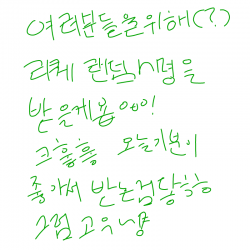 여러분들을위해(?)
리퀘 랜덕 n명을
받을게욤 ㅇㅅㅇ!
크흘흘 오늘기분이
좋아서 받는검당ㅎㅎ
그럼 고우 냥